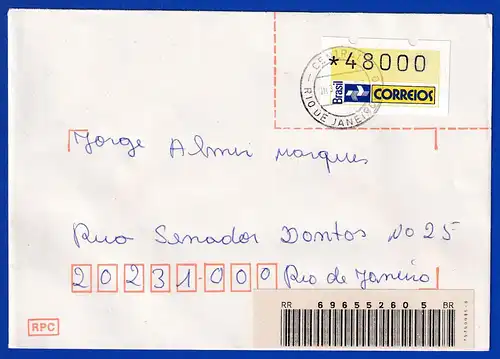 *48000
Brasil CORREIOS
RIO DE JANEIRO
Jorge Almir Marques
Rua Senador Dantas No 25
20231-000 Rio de Janeiro
RPC
RR 69655260 5 BR